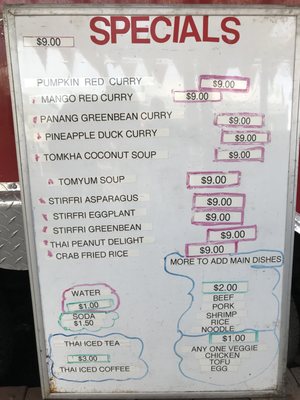 SPECIALS
$9.00
PUMPKIN RED CURRY $9.00
MANGO RED CURRY $9.00
PANANG GREENBEAN CURRY $9.00
PINEAPPLE DUCK CURRY $9.00
TOMKHA COCONUT SOUP $9.00
TOMYUM SOUP $9.00
STIRFRI ASPARAGUS $9.00
STIRFRI EGGPLANT $9.00
STIRFRI GREENBEAN $9.00
THAI PEANUT DELIGHT $9.00
CRAB FRIED RICE
MORE TO ADD MAIN DISHES
$2.00
BEEF
PORK
SHRIMP
RICE
NOODLE
$1.00
ANY ONE VEGGIE
CHICKEN
TOFU
EGG
WATER
$1.00
SODA
$1.50
THAI ICED TEA
$3.00
THAI ICED COFFEE